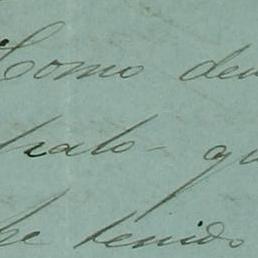 Como dem
palo- qu
he tenido